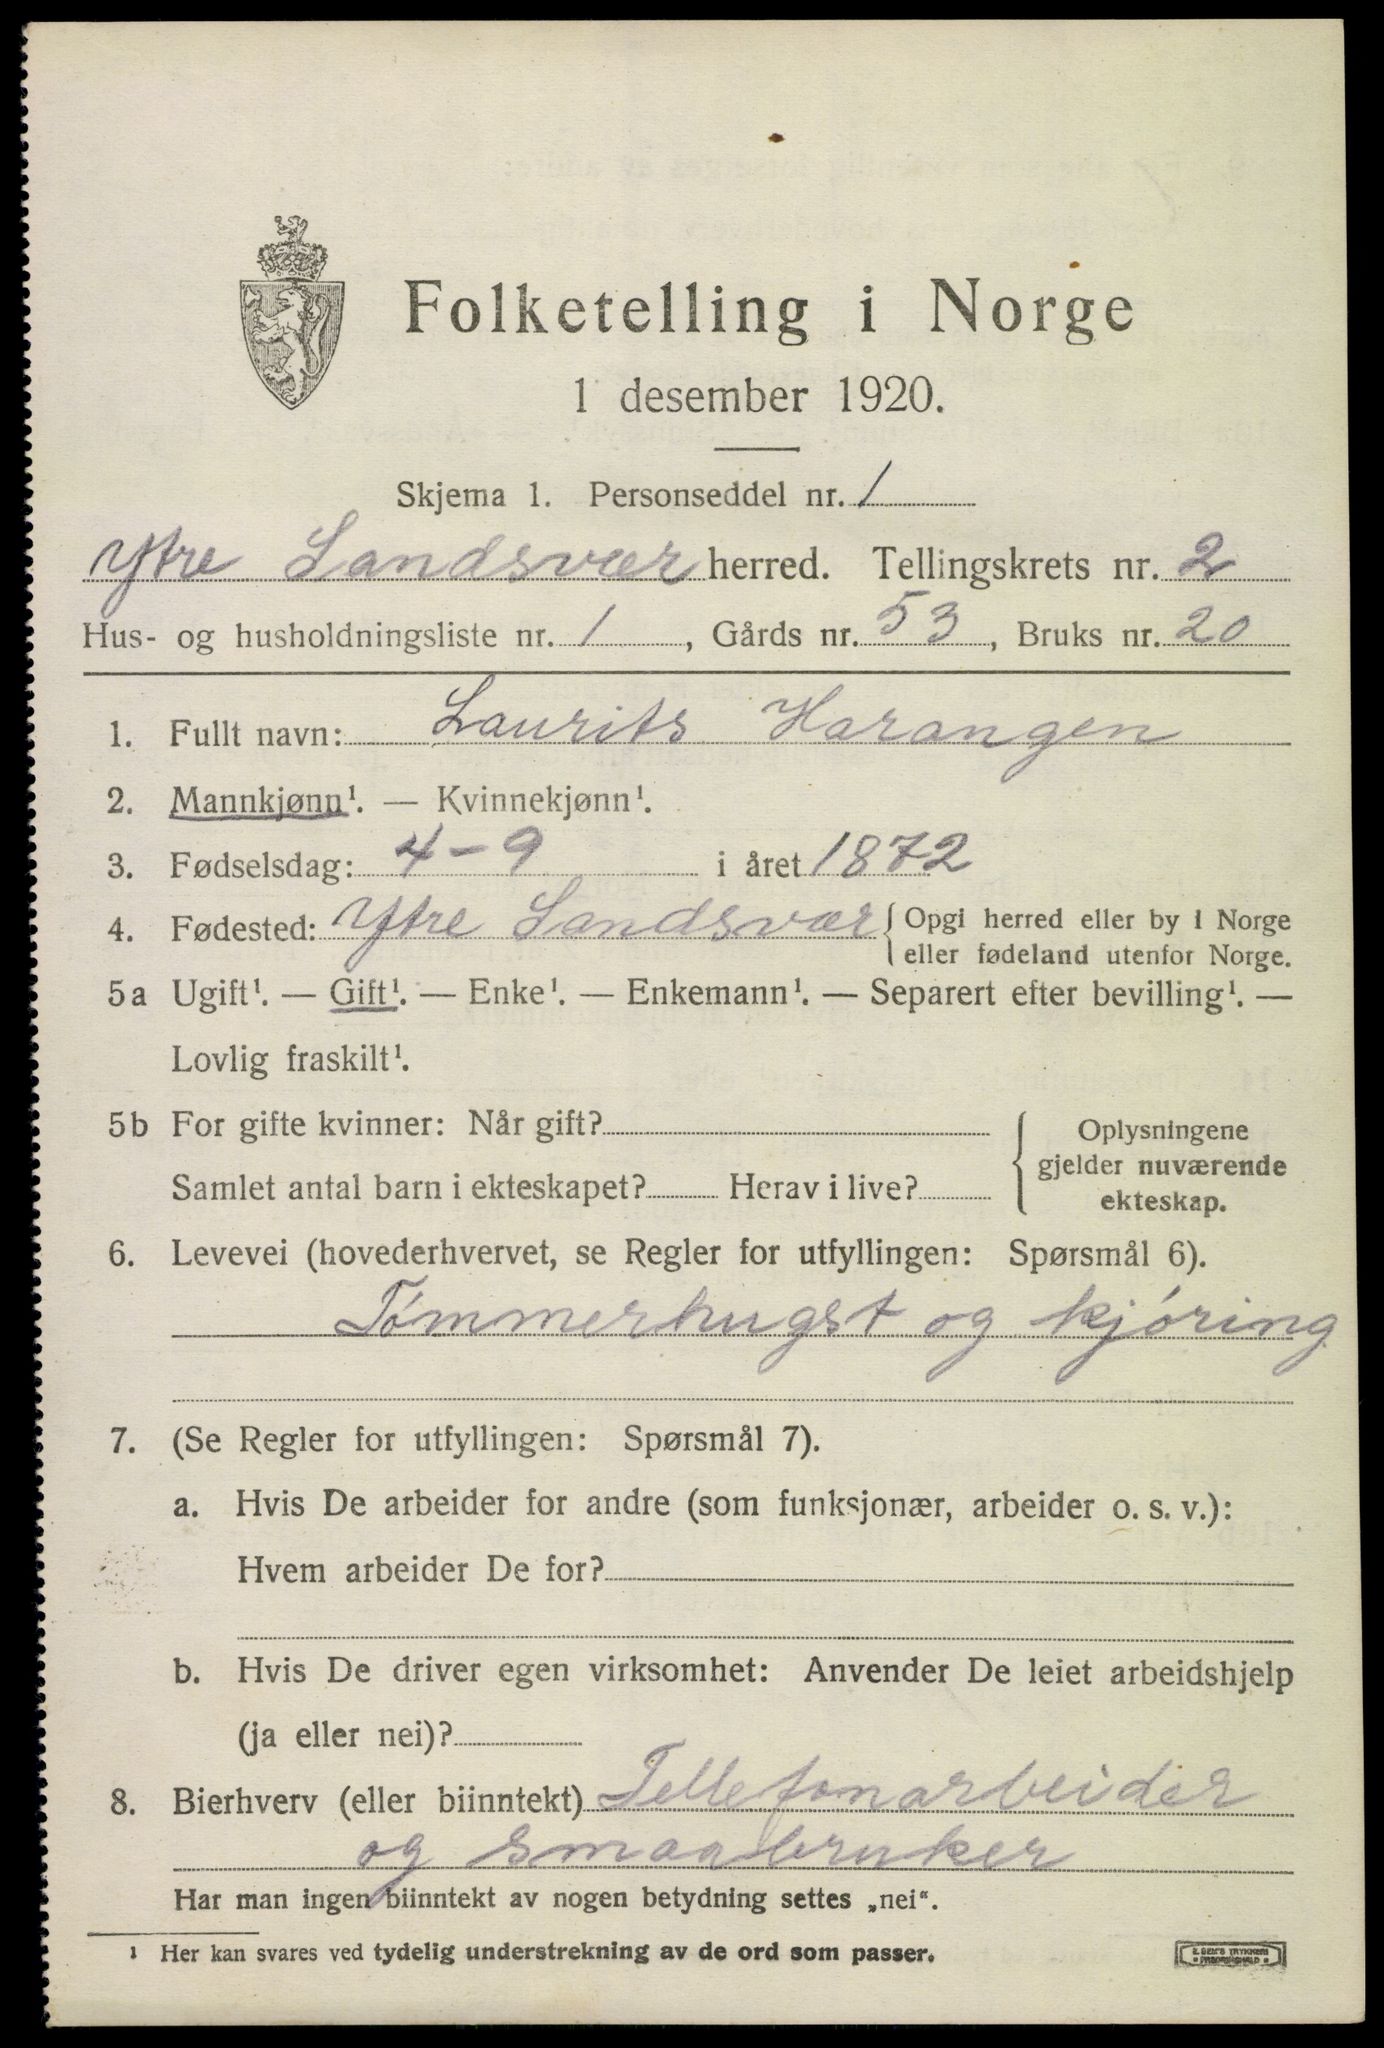 Folketelling i Norge
1 desember 1920.
Skjema 1. Personseddel nr. 1
Ytre Sandsvær herred. Tellingskrets nr. 2
Hus- og husholdningsliste nr. 1, Gårds nr. 53, Bruks nr. 20
1. Fullt navn: Laurits Harangen
2. Mannkjønn¹. — Kvinnekjønn¹.
3. Fødselsdag: 4-9 i året 1872
4. Fødested: Ytre Sandsvær { Opgi herred eller by i Norge
eller fødeland utenfor Norge.
5a Ugift¹. — Gift¹. — Enke¹. — Enkemann¹. — Separert efter bevilling¹. —
Lovlig fraskilt¹.
5b For gifte kvinner: Når gift?
Samlet antal barn i ekteskapet? Herav i live?
Oplysningene
gjelder nuværende
ekteskap.
6. Levevei (hovederhvervet, se Regler for utfyllingen: Spørsmål 6).
Tømmerhugst og kjøring
7. (Se Regler for utfyllingen: Spørsmål 7).
a. Hvis De arbeider for andre (som funksjonær, arbeider o. s. v.):
Hvem arbeider De for?
b. Hvis De driver egen virksomhet: Anvender De leiet arbeidshjelp
(ja eller nei)?
8. Bierhverv (eller biinntekt) Tellefonarbeider
og smaabruker
Har man ingen biinntekt av nogen betydning settes „nei“.
1 Her kan svares ved tydelig understrekning av de ord som passer.